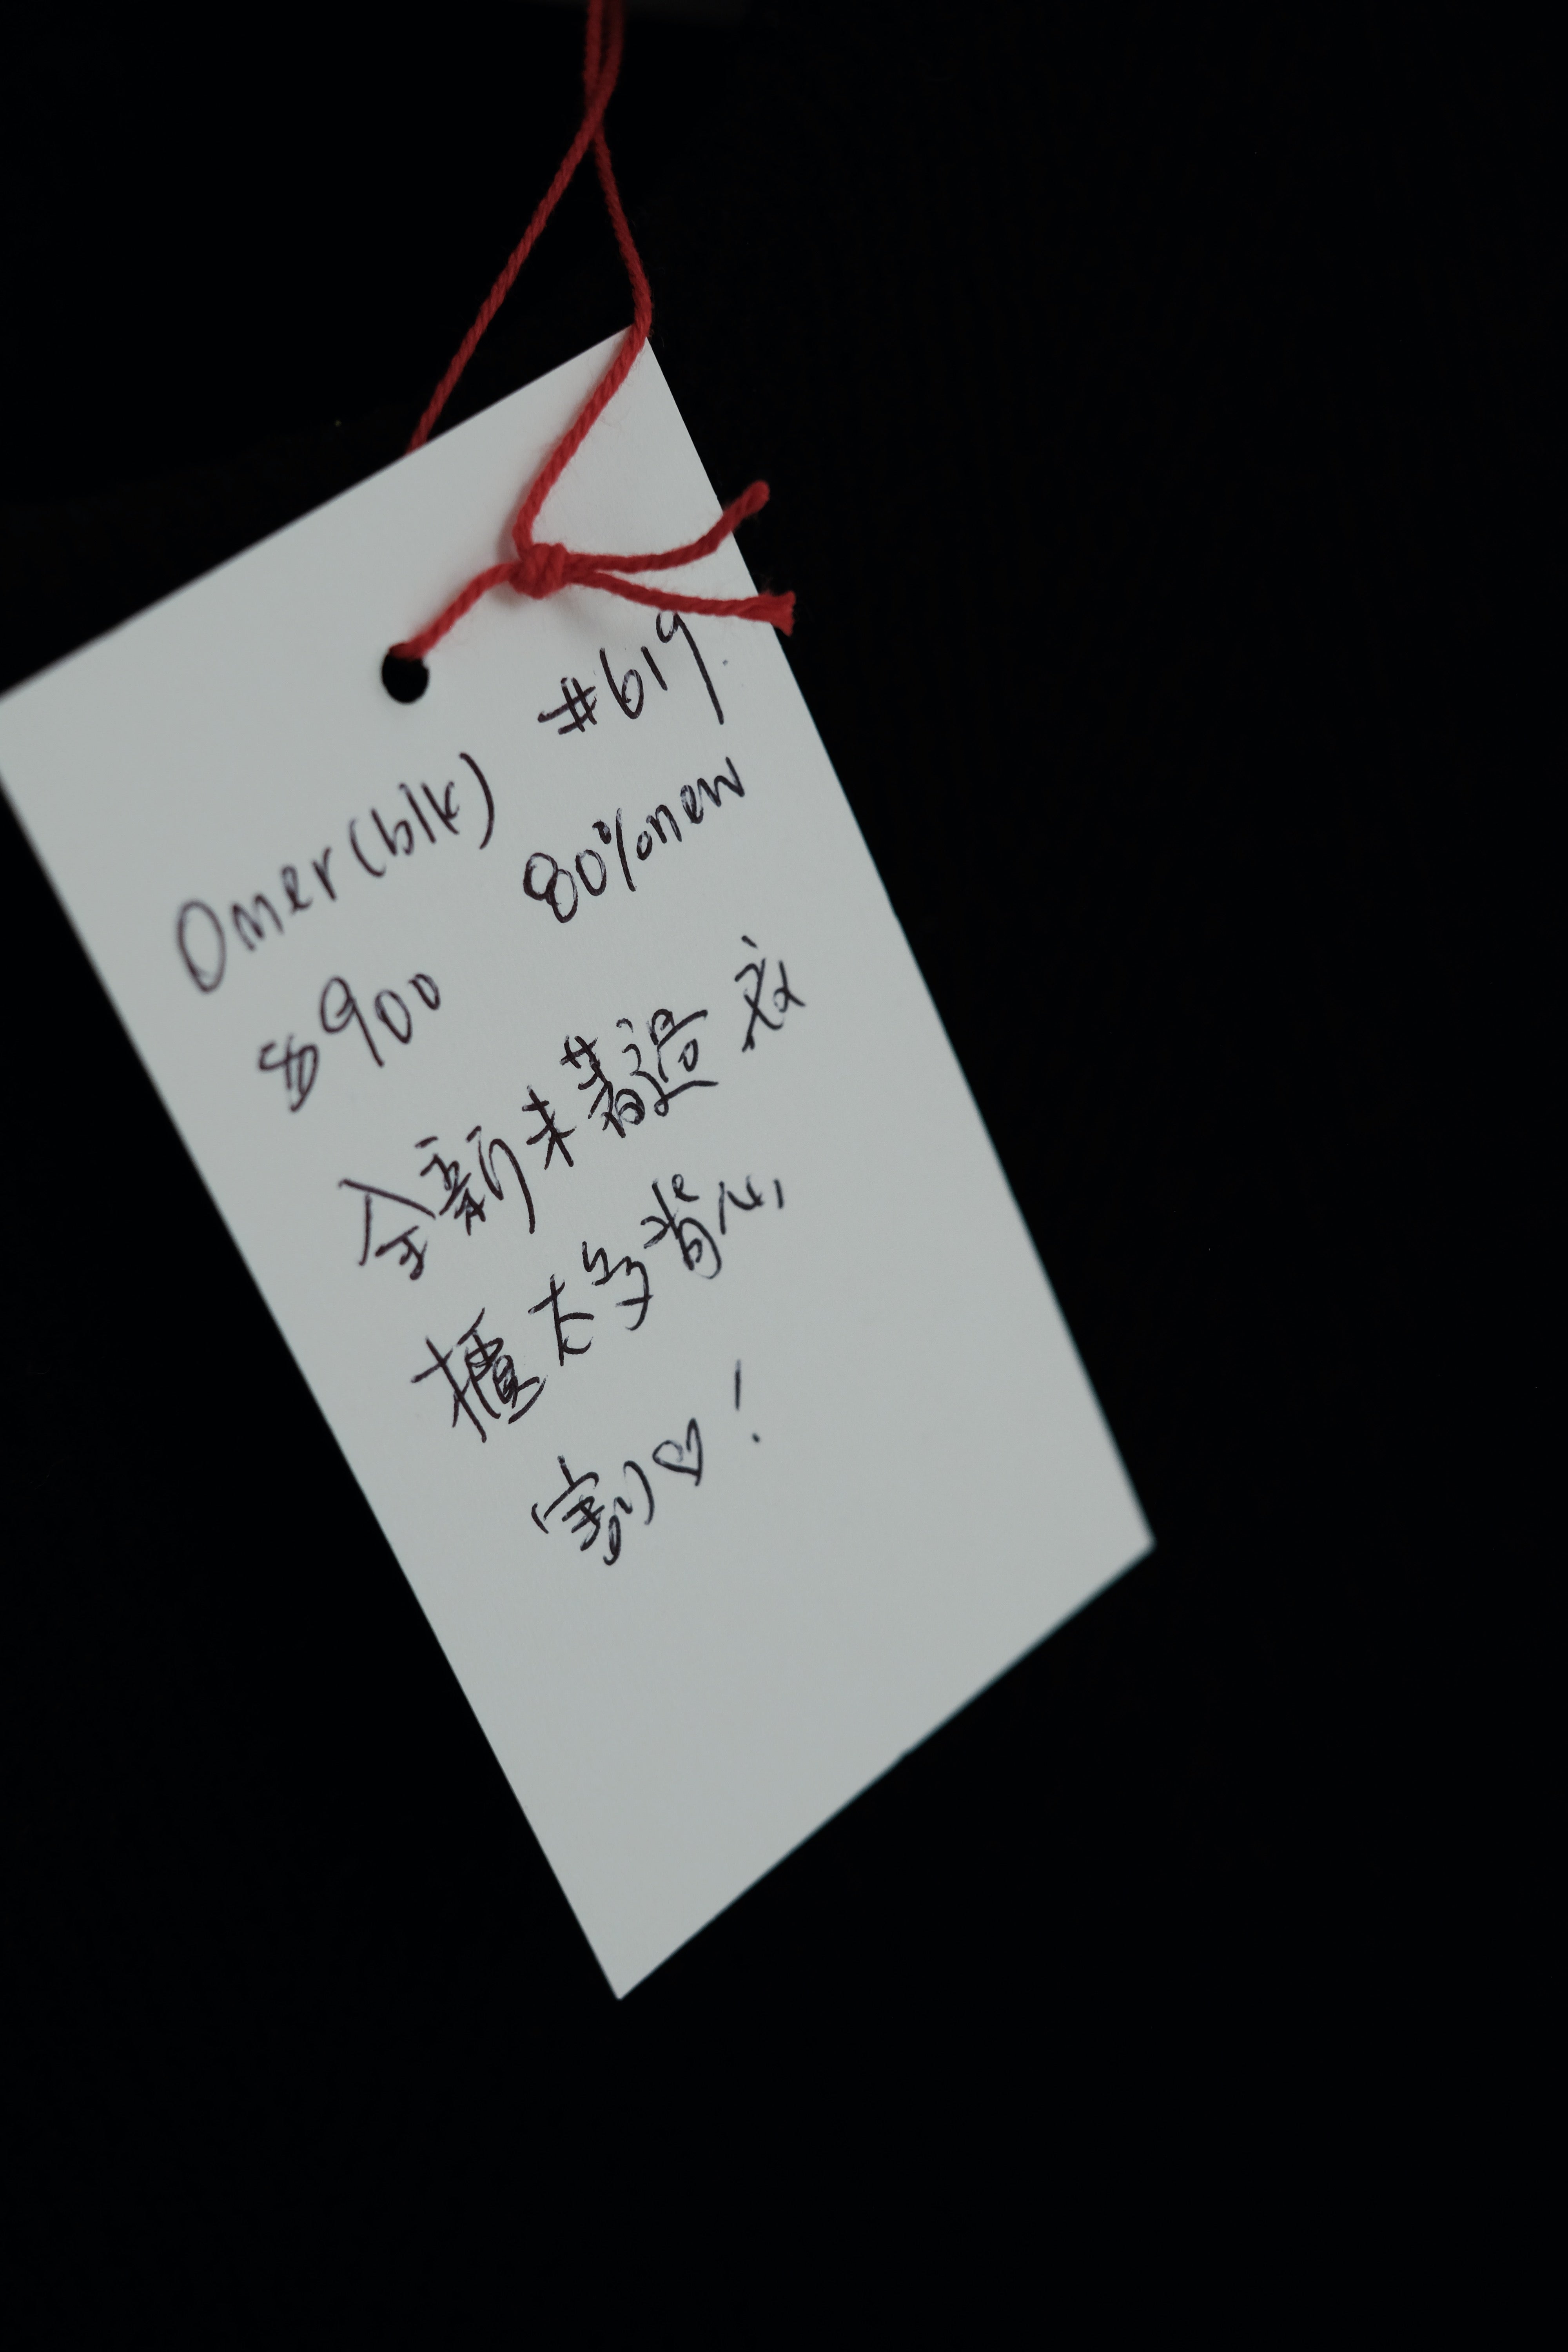 Omer(blk) #619
$900 80%new
全新未著過 衣
櫃太多背心
割♡!